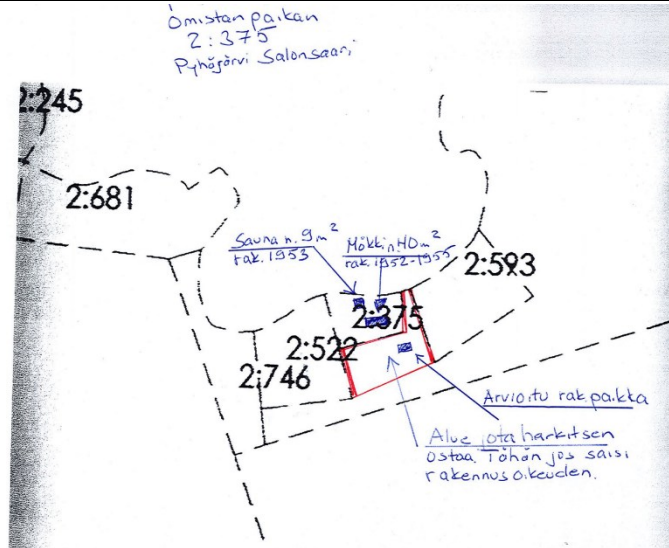 Omistan paikan
2:375
Pyhäjärvi Salonsaari
2:245
2:681
Sauna n. 9 m²
rak. 1953
Mökki n. 40 m²
rak. 1952-1955
2:593
2:375
2:522
2:746
Arvioitu rak.paikka
Alue jota harkitsen
ostaa. Tähän jos saisi
rakennusoikeuden.